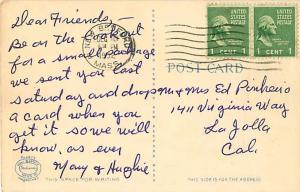 Dear Friends,
Be on the lookout
for a small package
we sent you last
saturday and drop
a card when you
get it so we will
know, as ever
Mary & Hughie
THIS SPACE FOR WRITING
UNITED STATES
POSTAGE
1 CENT
UNITED STATES
POSTAGE
1 CENT
NEW BEDFORD
MASS.
POST CARD
Mr & Mrs Ed Pinheiro
1411 Virginia Way
La Jolla
Cal.
THIS SIDE IS FOR THE ADDRESS